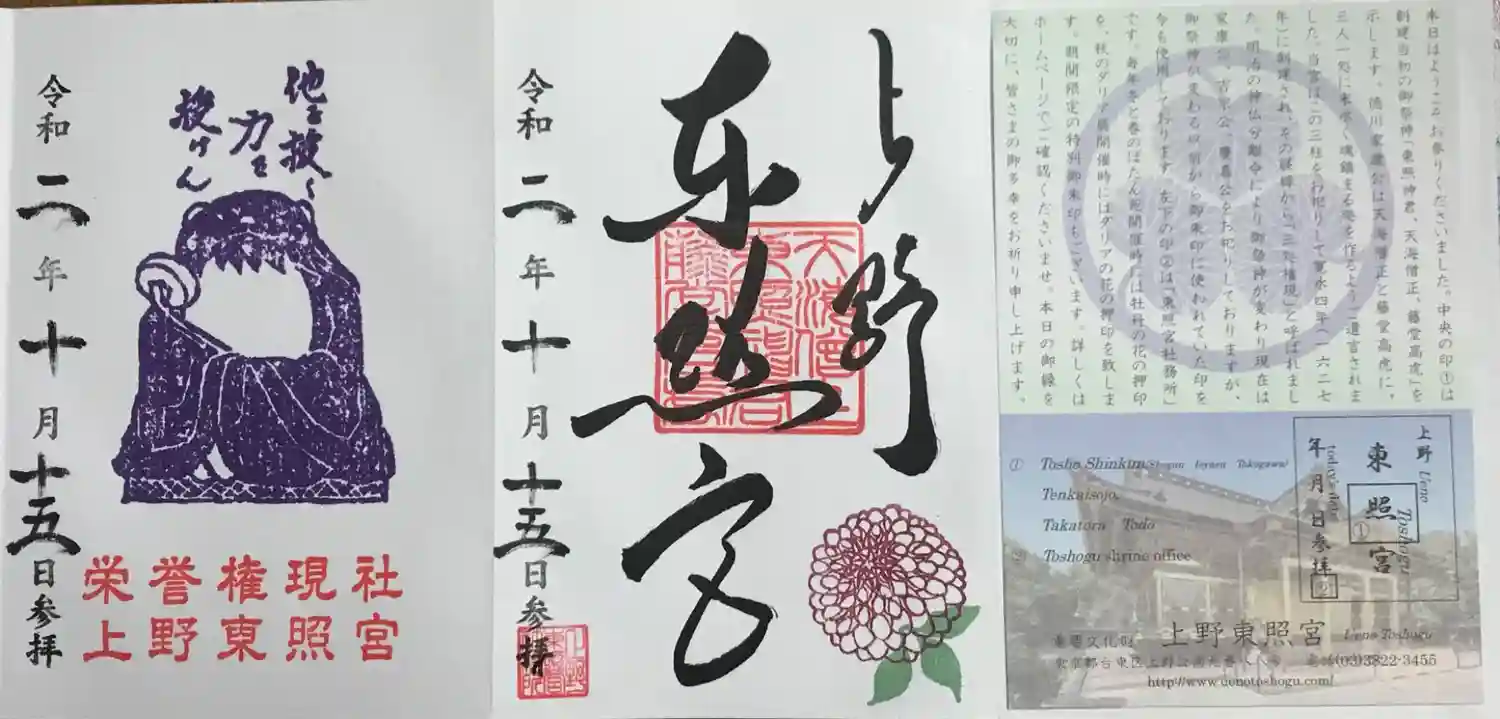 他を抜く
力を
授けん
令和二年十月十五日参拝
栄誉権現社
上野東照宮
上野
東照宮
令和二年十月十五日参拝
本日はようこそお参りくださいました。中央の印①は
創建当初の御祭神「東照神君、天海僧正、藤堂高虎」を
示します。徳川家康公は天海僧正と藤堂高虎に、
三人一処に末永く魂鎮まる所を作るようご遺言されま
した。当宮はこの三柱をお祀りして寛永四年(一六二七
年)に創建され、その経緯から「三処権現」と呼ばれまし
た。明治の神仏分離令により御祭神が変わり現在は
家康公、吉宗公、慶喜公をお祀りしておりますが、
御祭神が変わる以前から御朱印に使われていた印を
今も使用しております。左下の印②は「東照宮社務所」
です。毎年冬と春のぼたん苑開催時には牡丹の花の押印
を、秋のダリア展開催時にはダリアの花の押印を致しま
す。期間限定の特別御朱印もございます。詳しくは
ホームページでご確認くださいませ。本日の御縁を
大切に、皆さまの御多幸をお祈り申し上げます。
① Tosho Shinkun(Shogun Ieyasu Tokugawa)
Tenkaisojo,
Takatora Todo
② Toshogu shrine office
上野 Ueno
東照宮 Toshogu
①
年月日参拝 today's date
②
重要文化財 上野東照宮 Ueno Toshogu
東京都台東区上野公園九番八八号 電話(03)3822-3455
http://www.uenotoshogu.com/